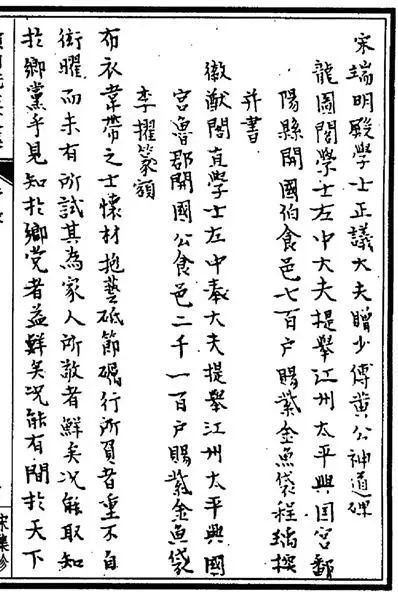 宋端明殿學士正議大夫贈少傅黄公神道碑
龍圖閣學士左中大夫提舉江州太平興国宮鄱
陽縣開國伯食邑七百户賜紫金魚袋程瑀撰
并書
徽猷閣直學士左中奉大夫提舉江州太平興國
宮魯郡開國公食邑二千一百户賜紫金魚袋
李擢篆額
布衣韋帶之士懷材抱藝砥節礪行所負者重不自
衒曜而未有所試其為家人所敬者鮮矣况能取知
扵鄉黨乎見知扵鄉党者益鮮矣况能有聞扵天下
宋集珍